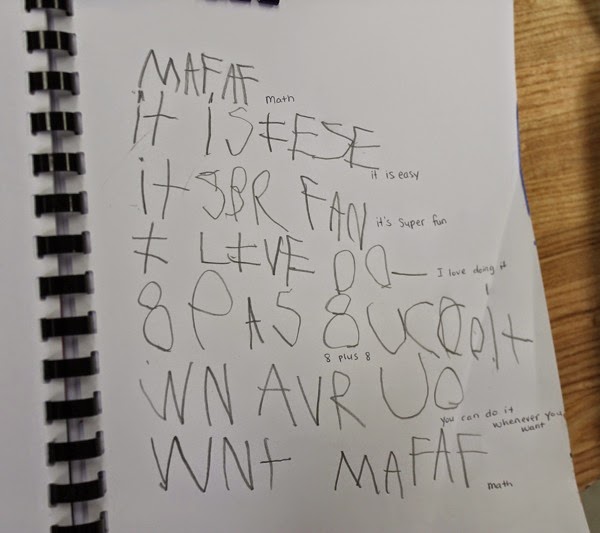 MAFAF
math
it IS EESE
it is easy
it SBR FAN
it's super fun
I LIVE DO
I love doing it
8 PAS 8 UCADoIt
8 plus 8
WN AVR UO
you can do it
whenever you
want
WNt MAFAF
math